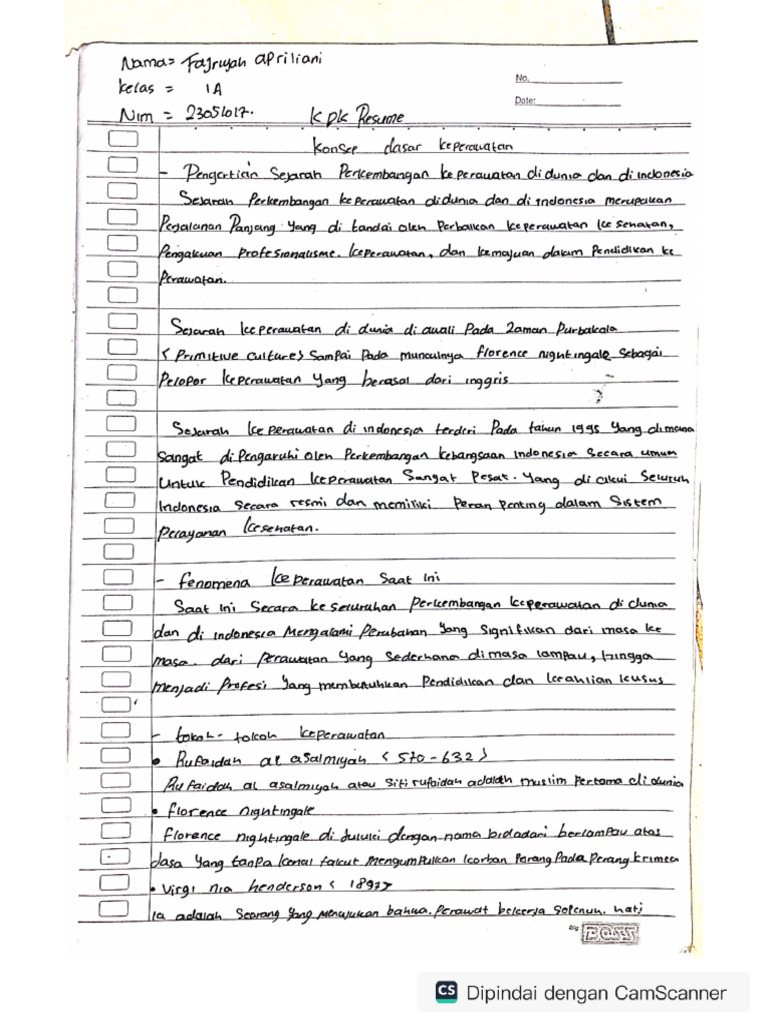 Nama = Fajruyah apriliani
Kelas = 1A
Nim = 23051017.
KDK Resume
No.
Date:
Konsep dasar keperawatan
- Pengertian Sejarah Perkembangan keperawatan didunia dan di indonesia
Sejarah Perkembangan keperawatan didunia dan di indonesia merupakan
Perjalanan Panjang yang di tandai oleh Perbaikan keperawatan kesehatan,
Pengakuan Profesionalisme. keperawatan, dan kemajuan dalam Pendidikan ke
Perawatan.
Sejarah keperawatan di dunia di awali Pada zaman Purbakala
(Primitive culture) Sampai Pada munculnya florence nightingale Sebagai
Pelopor keperawatan yang berasal dari inggris
Sejarah keperawatan di indonesia terdiri Pada tahun 1995 yang dimana
Sangat di Pengaruhi oleh Perkembangan kebangsaan indonesia Secara umum
Untuk Pendidikan keperawatan Sangat Pesat. yang di akui Seluruh
Indonesia Secara resmi dan memiliki Peran Penting dalam Sistem
Pelayanan kesehatan.
- fenomena keperawatan Saat ini
Saat ini Secara keseluruhan Perkembangan keperawatan di dunia
dan di indonesia Mengalami Perubahan yang Signifikan dari masa ke
masa. dari Perawatan yang Sederhana di masa lampau, hingga
menjadi Profesi yang membutuhkan Pendidikan dan keahlian kusus
- tokoh-tokoh keperawatan
• Rufaidah al asalmiyah (570-632)
Rufaidah al asalmiyah atau Siti rufaidah adalah muslim Pertama di dunia
• florence nightingale
florence nightingale di juluki dengan nama bidadari berlampu atas
Jasa yang tanpa kenal takut mengumpulkan korban Perang Pada Perang krimea
• Virgi nia henderson (1897)
ia adalah Seorang yang menunjukan bahwa. Perawat bekerja Sepenuh. hati
Dipindai dengan CamScanner
CS